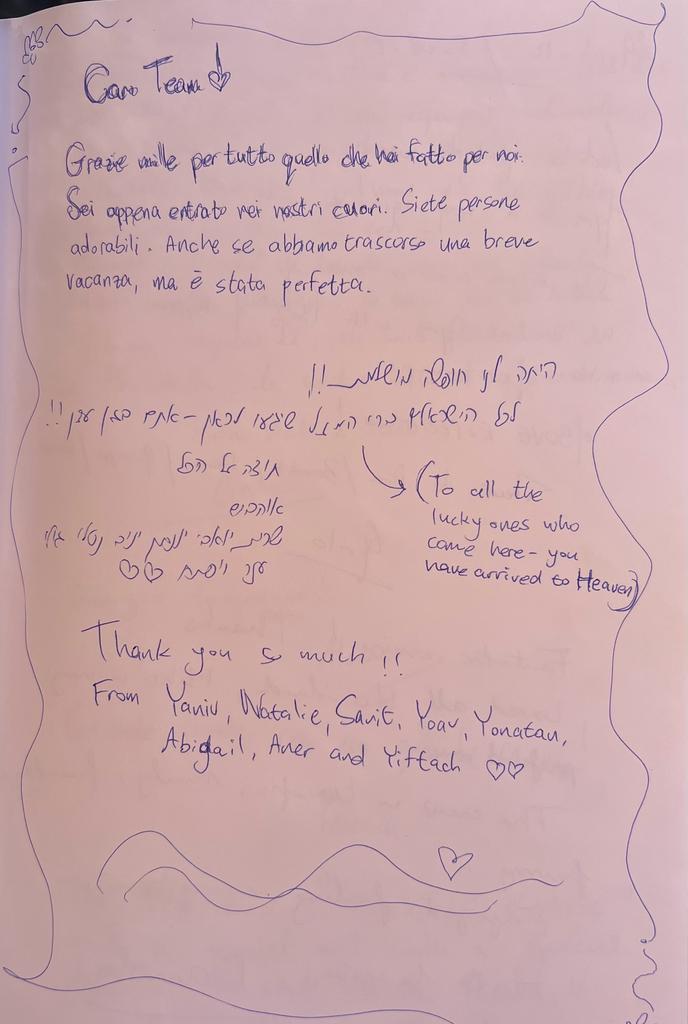 Caro Team
Grazie mille per tutto quello che hai fatto per noi.
Sei appena entrato nei nostri cuori. Siete persone
adorabili. Anche se abbamo trascorso una breve
vacanza, ma è stata perfetta.
היתה לנו חופשה מושלמת!!
לכל הישראלים ברי המזל שיגעו לכאן - אתם בגן עדן!!
תודה על הכל
אוהבים
שרית יואב יונתן יניב נטלי
ענר ויפתח
(To all the
lucky ones who
come here - you
have arrived to Heaven)
Thank you so much!!
From Yaniv, Natalie, Sarit, Yoav, Yonatan,
Abigail, Aner and Yiftach